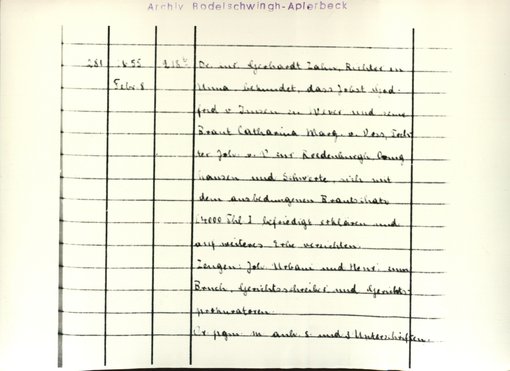 Archiv Bodelschwingh-Aplerbeck
281 1655 218
Febr. 8
Dr. iur. Gerhardt Zahn, Richter in
Unna bekundet, dass Jobst God-
ford v. in und seine
Braut Catharina Marg. v. Voss, Toch-
ter Joh. v. V zur Rodenburgh
hausen und Schwerte, sich mit
dem ausbedungenen Brautschatz
(4000 Thl) befriedigt erklären und
auf weiteres Erbe verzichten.
Zeugen: Joh. Urbani und Henr. zum
Bruch, Gerichtsschreiber und Gerichts-
prokuratoren.
Or. pgm. m. anh. S. und Unterschriften.